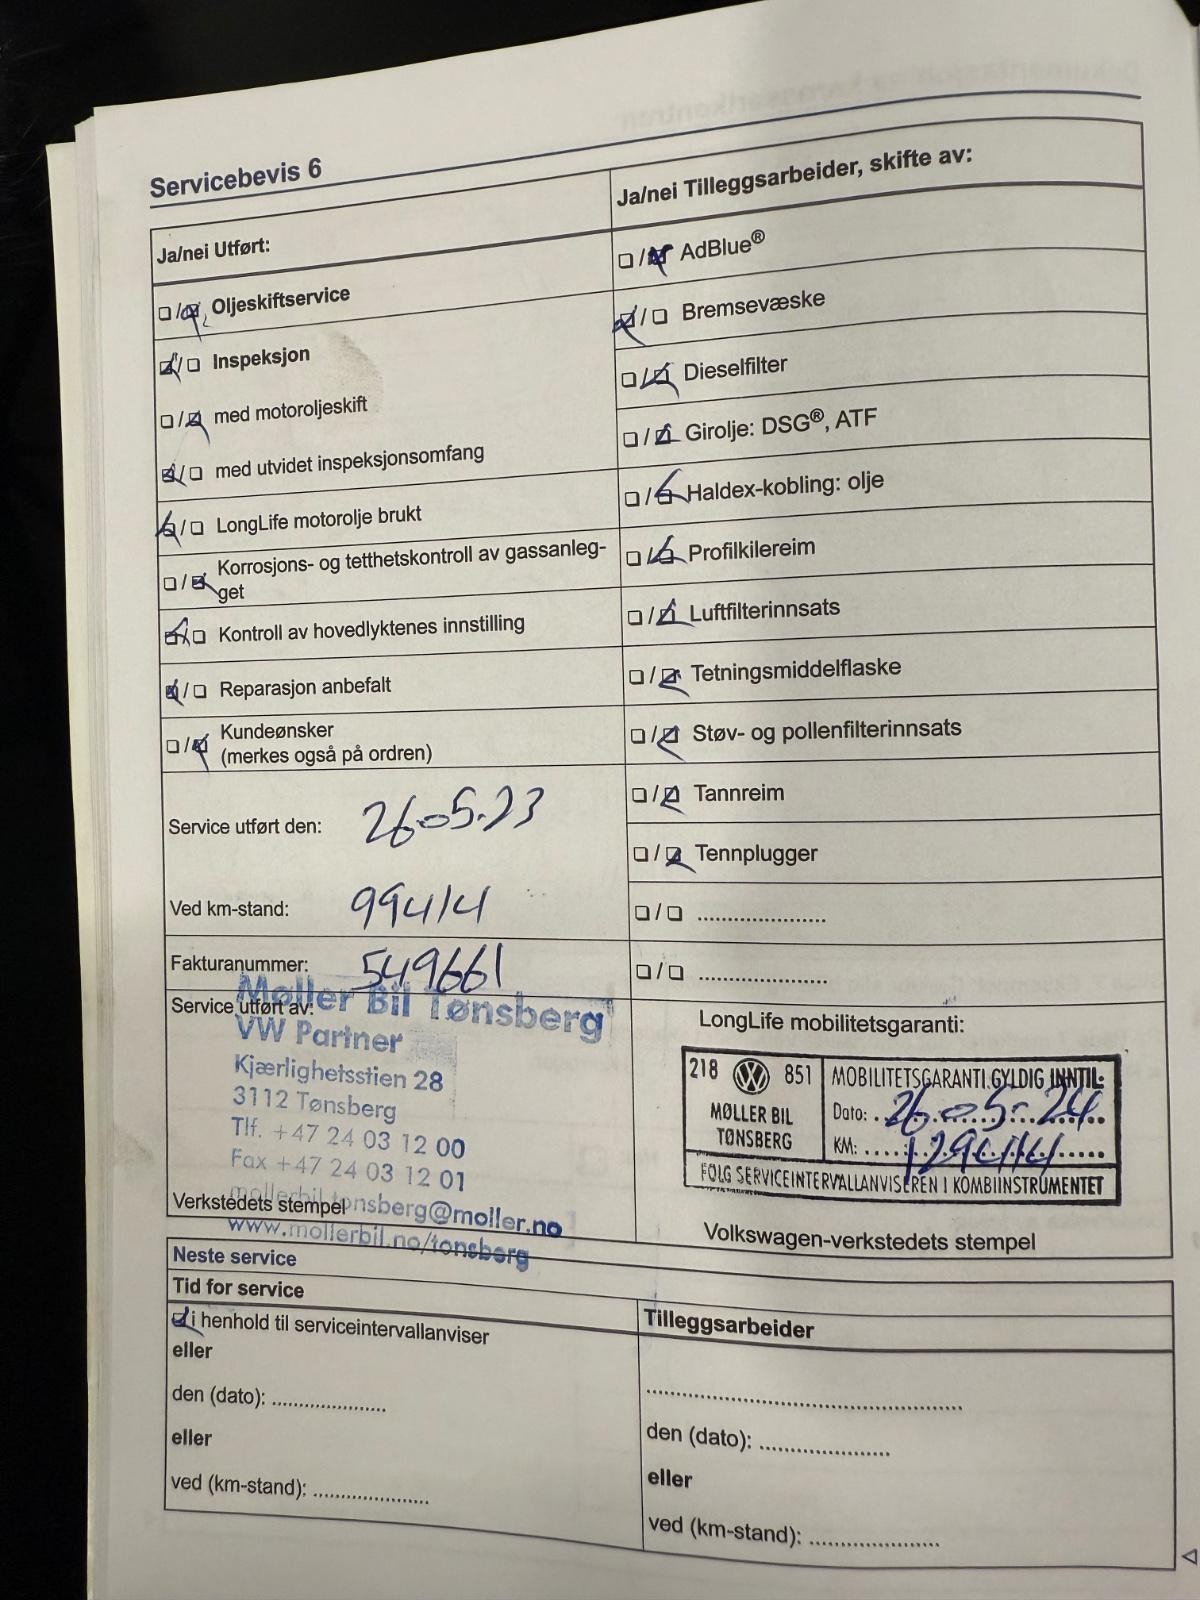 Servicebevis 6
Ja/nei Utført:
☐/☒ Oljeskiftservice
☒/☐ Inspeksjon
☐/☒ med motoroljeskift
☒/☐ med utvidet inspeksjonsomfang
☒/☐ LongLife motorolje brukt
☐/☒ Korrosjons- og tetthetskontroll av gassanleg-
get
☒/☐ Kontroll av hovedlyktenes innstilling
☒/☐ Reparasjon anbefalt
☐/☒ Kundeønsker
(merkes også på ordren)
Service utført den: 26-05.23
Ved km-stand: 99414
Fakturanummer: 549661
Service utført av:
Møller Bil Tønsberg
VW Partner
Kjærlighetsstien 28
3112 Tønsberg
Tlf. +47 24 03 12 00
Fax +47 24 03 12 01
mollerbil.tonsberg@moller.no
Verkstedets stempel
www.mollerbil.no/tonsberg
Ja/nei Tilleggsarbeider, skifte av:
☐/☒ AdBlue®
☒/☐ Bremsevæske
☐/☒ Dieselfilter
☐/☒ Girolje: DSG®, ATF
☐/☒ Haldex-kobling: olje
☐/☒ Profilkilereim
☐/☒ Luftfilterinnsats
☐/☒ Tetningsmiddelflaske
☐/☒ Støv- og pollenfilterinnsats
☐/☒ Tannreim
☐/☒ Tennplugger
☐/☐ ......................
☐/☐ ......................
LongLife mobilitetsgaranti:
218 VW 851
MØLLER BIL
TØNSBERG
MOBILITETSGARANTI GYLDIG INNTIL:
Dato: 26-05-24
KM: 129414
FØLG SERVICEINTERVALLANVISEREN I KOMBIINSTRUMENTET
Volkswagen-verkstedets stempel
Neste service
Tid for service
☒ i henhold til serviceintervallanviser
eller
den (dato): ......................
eller
ved (km-stand): ......................
Tilleggsarbeider
............................................................
den (dato): ......................
eller
ved (km-stand): ......................